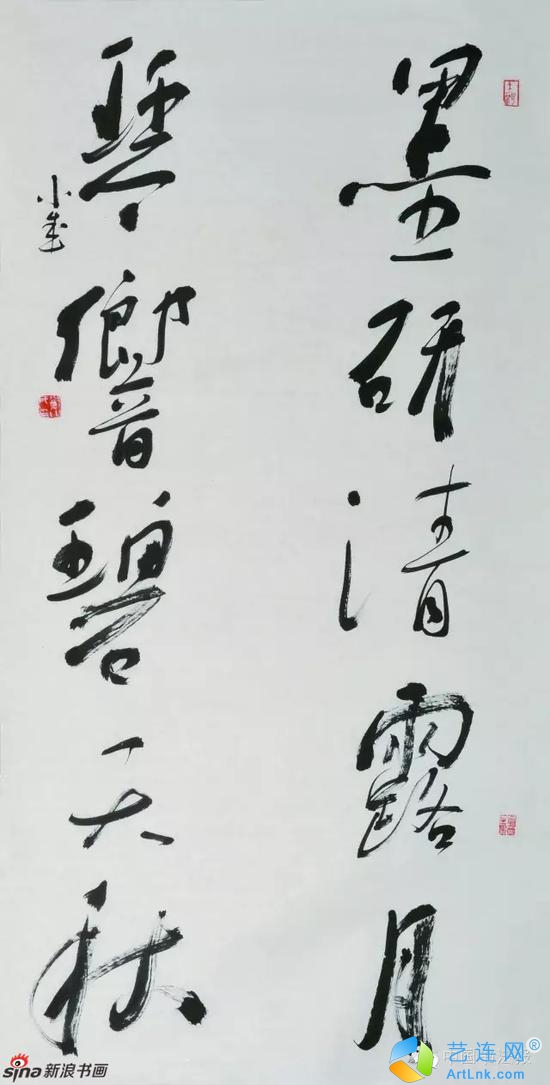 墨研清露月
琴響碧天秋
小
sina新浪书画
艺连网®
ArtLnk.com